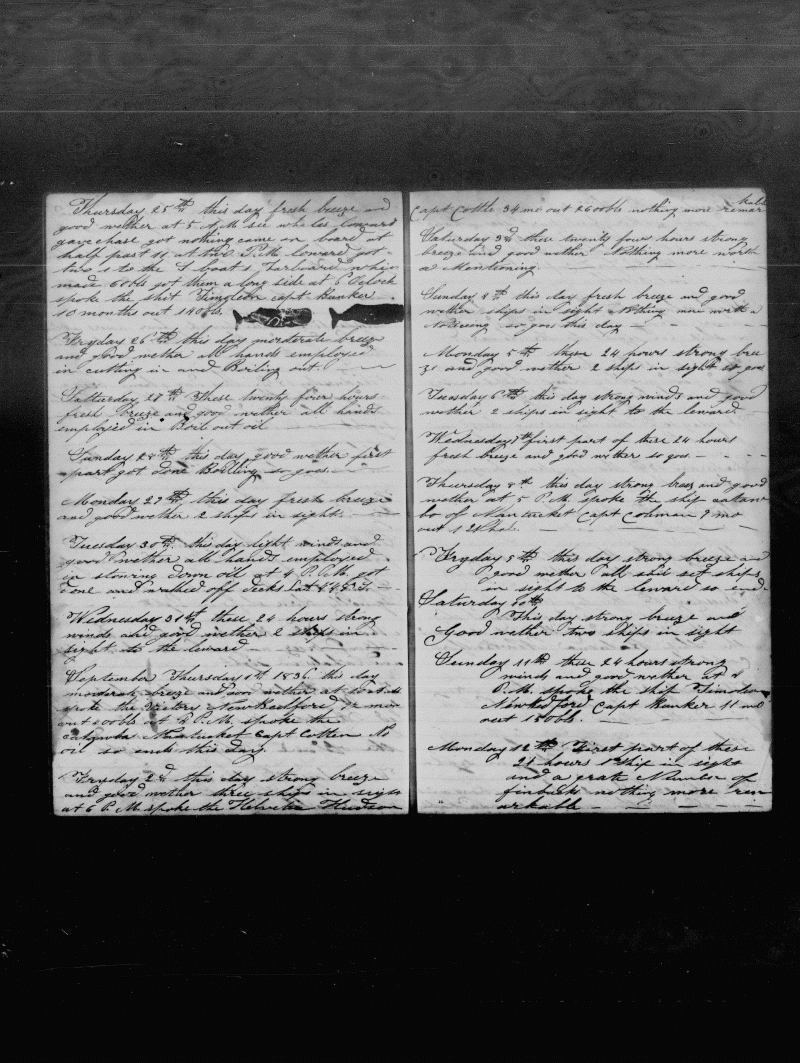 Thursday 25th this day fresh breeze and
good wether at 5 A.M see whales leward
gave chase got nothing came on board at
half past 11 at two P.M leward got
two 1 to the L boat 1 Larboard which
made 60bbls got them a long side at 6 Oclock
spoke the shit Timoleon capt Bunker
10 months out 1400bls
Fryday 26th this day morderate breeze
and good wether all hands employed
in cutting in and Boiling out
Satturday 27th These twenty four hours
fresh breeze and good wether all hands
employed in Boil out oil
Sunday 28th this day good wether first
part got done Boiling so goes
Monday 29th this day fresh breeze
and good wether 2 ships in sight
Tuesday 30th this day light winds and
good wether all hands employed
in stowing down oil at 4 P.M. got
done and washed off decks Lat
Wednesday 31st these 24 hours strong
winds and good wether 2 ships in
sight to the leward
September Thursday 1st 1836 this day
moderate breeze and good wether at
spoke the Victory New Bedford, 12 mo
out 600bls at 4 P.M. spoke the
catawba Nantucket Capt Cotten No
oil so ends this day
Fryday 2d this day strong breeze
and good wether three ships in sight
at 6 P.M spoke the Helvetia Hudson
kable
Capt Cottle 34 mo out 2600bls nothing more remar
Saturday 3d these twenty four hours strong
breeze and good wether Nothing more worth
a Mentioning
Sunday 4th this day fresh breeze and good
wether ships in sight Nothing more worth a
Noticeing so goes this day
Monday 5th these 24 hours strong bree
ze and good wether 2 ships in sight so goes
Tuesday 6th this day strong winds and good
wether 2 ships in sight to the leward
Wednesday 7th first part of these 24 hours
fresh breeze and good wether so goes
Thursday 8th this day strong breeze and good
wether at 5 P.M spoke the ship
bo of Nantucket Capt Coleman 9 mo
out
Fryday 9th this day strong breeze and
good wether all sail set ships
in sight to the leward so end
Saturday 10th
This day strong breeze and
Good wether two ships in sight
Sunday 11th these 24 hours strong
winds and good wether at 4
P.M. spoke the ship Timoleon
Newbedford Capt Bunker 11 mo
out 1500bls
Monday 12th First part of these
24 hours 1 ship in sight
and a grate Number of
finbacks nothing more rem
arkable